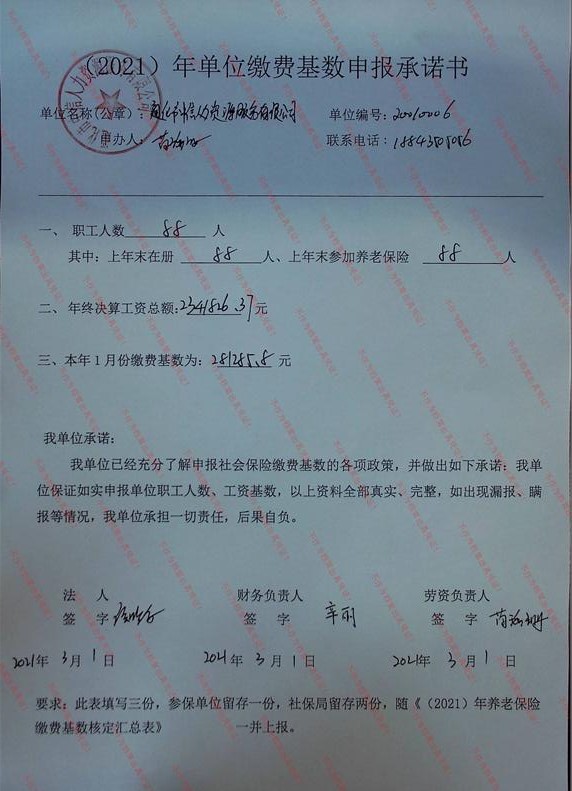 （2021）年单位缴费基数申报承诺书
单位名称（公章）： 单位编号：20010006
申办人： 联系电话：18843505056
一、 职工人数 88 人
其中：上年末在册 88 人、上年末参加养老保险 88 人
二、 年终决算工资总额：2341826.37元
三、本年1月份缴费基数为：281285.8 元
我单位承诺：
我单位已经充分了解申报社会保险缴费基数的各项政策，并做出如下承诺：我单
位保证如实申报单位职工人数、工资基数，以上资料全部真实、完整，如出现漏报、瞒
报等情况，我单位承担一切责任，后果自负。
法 人 财务负责人 劳资负责人
签 字 签 字 辛丽 签 字
2021年 3月1日 2021年 3月1日 2021年 3月1日
要求：此表填写三份，参保单位留存一份，社保局留存两份，随《（2021）年养老保险
缴费基数核定汇总表》 一并上报。